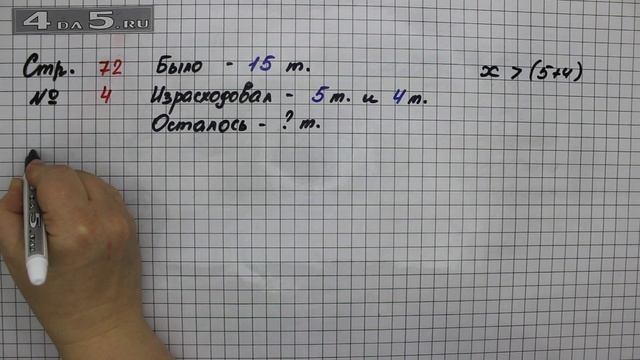 4 DA 5.RU
Стр. 72 Было - 15 т. x > (5+4)
№ 4 Израсходовал - 5 т. и 4 т.
Осталось - ? т.